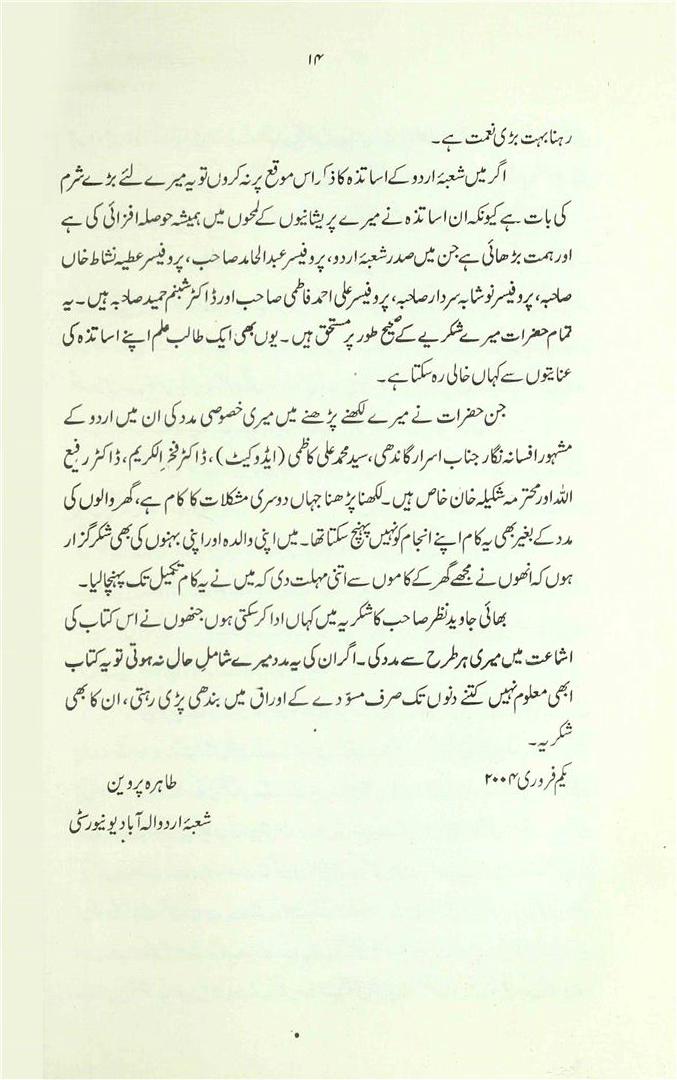 ۱۴
رہنا بہت بڑی نعمت ہے۔
اگر میں شعبۂ اردو کے اساتذہ کا ذکر اس موقع پر نہ کروں تو یہ میرے لئے بڑے شرم
کی بات ہے کیونکہ ان اساتذہ نے میرے پریشانیوں کے لمحوں میں ہمیشہ حوصلہ افزائی کی ہے
اور ہمت بڑھائی ہے جن میں صدر شعبۂ اردو، پروفیسر عبدالحامد صاحب، پروفیسر عطیہ نشاط خاں
صاحبہ، پروفیسر نوشابہ سردار صاحبہ، پروفیسر علی احمد فاطمی صاحب اور ڈاکٹر شبنم حمید صاحبہ ہیں۔ یہ
تمام حضرات میرے شکریے کے صحیح طور پر مستحق ہیں۔ یوں بھی ایک طالب علم اپنے اساتذہ کی
عنایتوں سے کہاں خالی رہ سکتا ہے۔
جن حضرات نے میرے لکھنے پڑھنے میں میری خصوصی مدد کی ان میں اردو کے
مشہور افسانہ نگار جناب اسرار گاندھی، سید محمد علی کاظمی (ایڈوکیٹ)، ڈاکٹر فخر الکریم، ڈاکٹر رفیع
اللہ اور محترمہ شکیلہ خان خاص ہیں۔ لکھنا پڑھنا جہاں دوسری مشکلات کا کام ہے، گھر والوں کی
مدد کے بغیر بھی یہ کام اپنے انجام کو نہیں پہنچ سکتا تھا۔ میں اپنی والدہ اور اپنی بہنوں کی بھی شکر گزار
ہوں کہ انھوں نے مجھے گھر کے کاموں سے اتنی مہلت دی کہ میں نے یہ کام تکمیل تک پہنچا لیا۔
بھائی جاوید نظر صاحب کا شکریہ میں کہاں ادا کر سکتی ہوں جنھوں نے اس کتاب کی
اشاعت میں میری ہر طرح سے مدد کی۔ اگر ان کی یہ مدد میرے شاملِ حال نہ ہوتی تو یہ کتاب
ابھی معلوم نہیں کتنے دنوں تک صرف مسوّدے کے اوراق میں بندھی پڑی رہتی، ان کا بھی
شکریہ۔
یکم فروری ۲۰۰۴
طاہرہ پروین
شعبۂ اردو الہ آباد یونیورسٹی